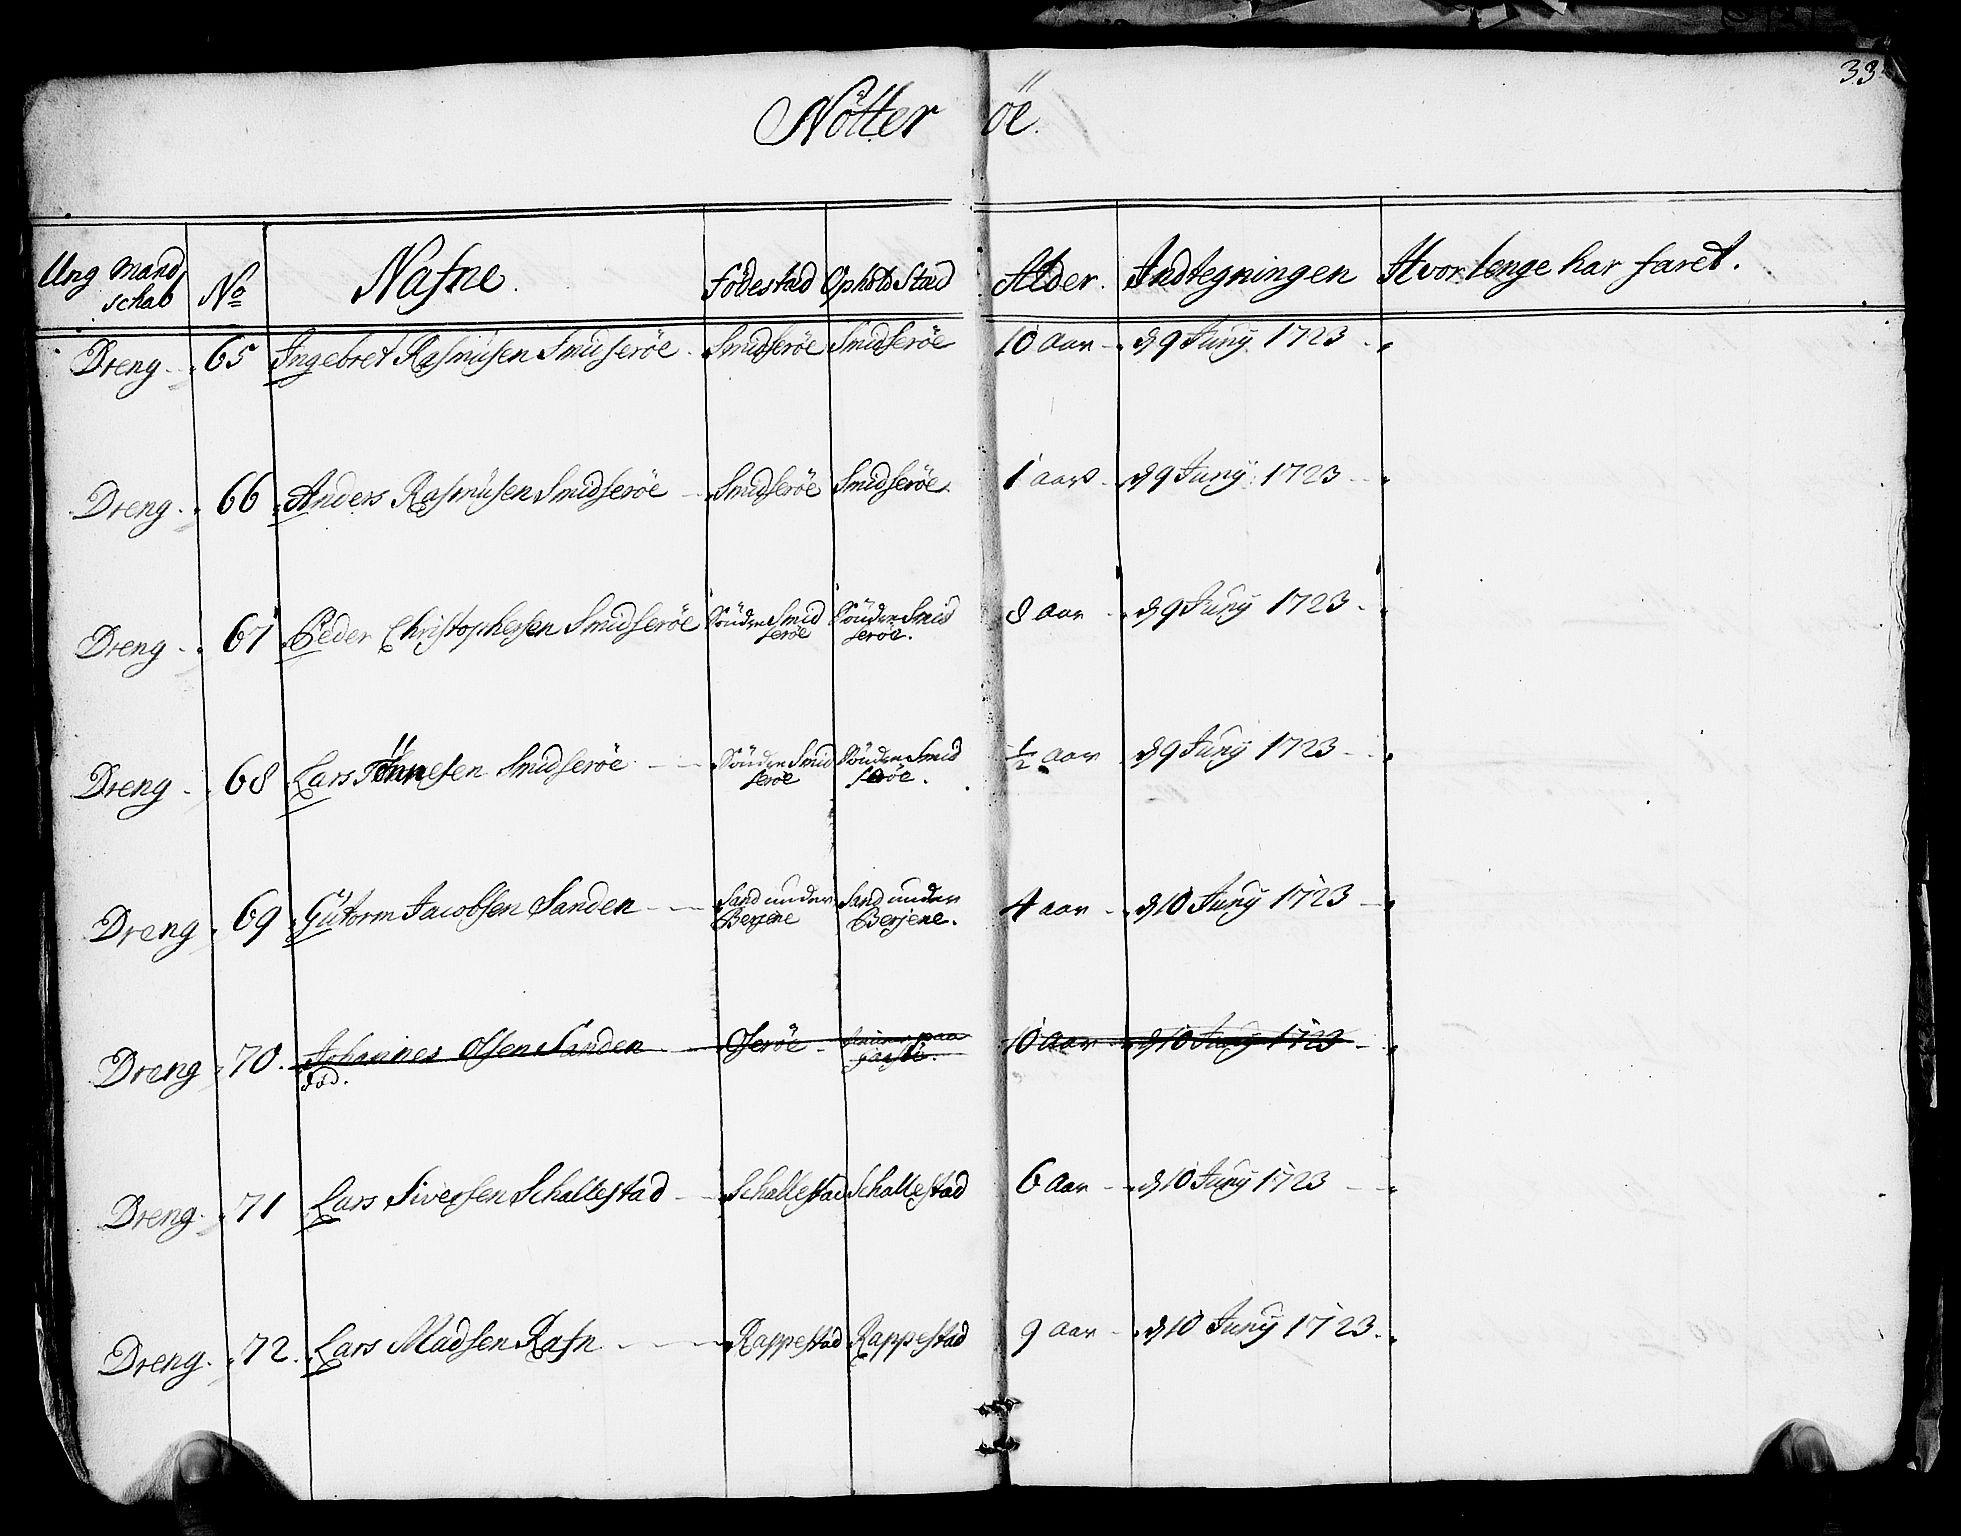 33
Nötter öe.
Ung Mand schab No Nafne. Födestad Opholds Stad Alder. Indtegningen Hvor lenge har faret.
Dreng 65 Ingebret Rasmüsen Smidseröe Smidseröe Smidseröe 10 aar d 9 Junÿ 1723
Dreng 66 Anders Rasmüsen Smidseröe Smidseröe Smidseröe 1 aar d 9 Junÿ 1723
Dreng 67 Peder Christophersen Smidseröe Söndre Smid seröe Söndre Smid seröe. 8 aar d 9 Junÿ 1723
Dreng 68 Lars Tönnesen Smidseröe Söndre Smid seröe Söndre Smid seröe. 1/2 aar d 9 Junÿ 1723
Dreng 69 Gütorm Jacobsen Sanden Sand under Berjene Sand under Berjene. 4 aar d 10 Junÿ 1723
Dreng 70. Johannes Olsen Sanden Oseröe paa 10 aar d 10 Junÿ 1723
död.
Dreng 71 Lars Siversen Schallestad Schallestad Schallestad 6 aar d 10 Junÿ 1723
Dreng 72. Lars Madsen Rafn Rappestad Rappestad 9 aar d 10 Junÿ 1723.